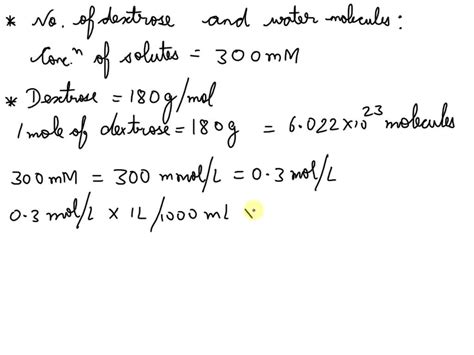 * No. of dextrose and water molecules:
Concⁿ of solutes = 300mM
* Dextrose = 180g/mol
1 mole of dextrose = 180g = 6.022×10²³ molecules
300 mM = 300 mmol/L = 0.3 mol/L
0.3 mol/L × 1L/1000 ml